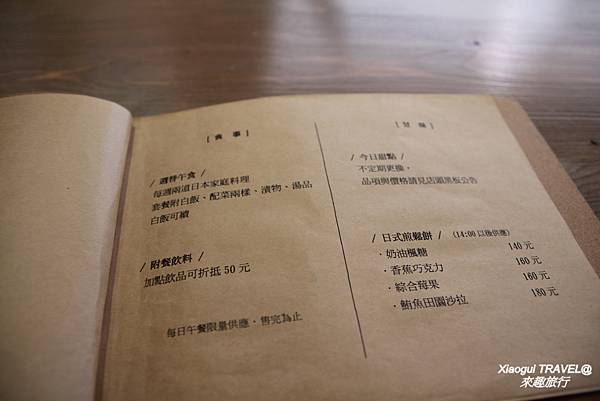 [ 食 事 ]
/ 週替午食 /
每週兩道日本家庭料理
套餐附白飯、配菜兩樣、漬物、湯品
白飯可續
/ 附餐飲料 /
加點飲品可折抵 50 元
每日午餐限量供應，售完為止
/ 今日甜點 /
不定期更換，
品項與價格請見店頭黑板公告
/ 日式煎鬆餅 / (14:00 以後供應)
·奶油楓糖 140 元
·香蕉巧克力 160 元
·綜合莓果 160 元
·鮪魚田園沙拉 180 元
Xiaogui TRAVEL@
來趣旅行